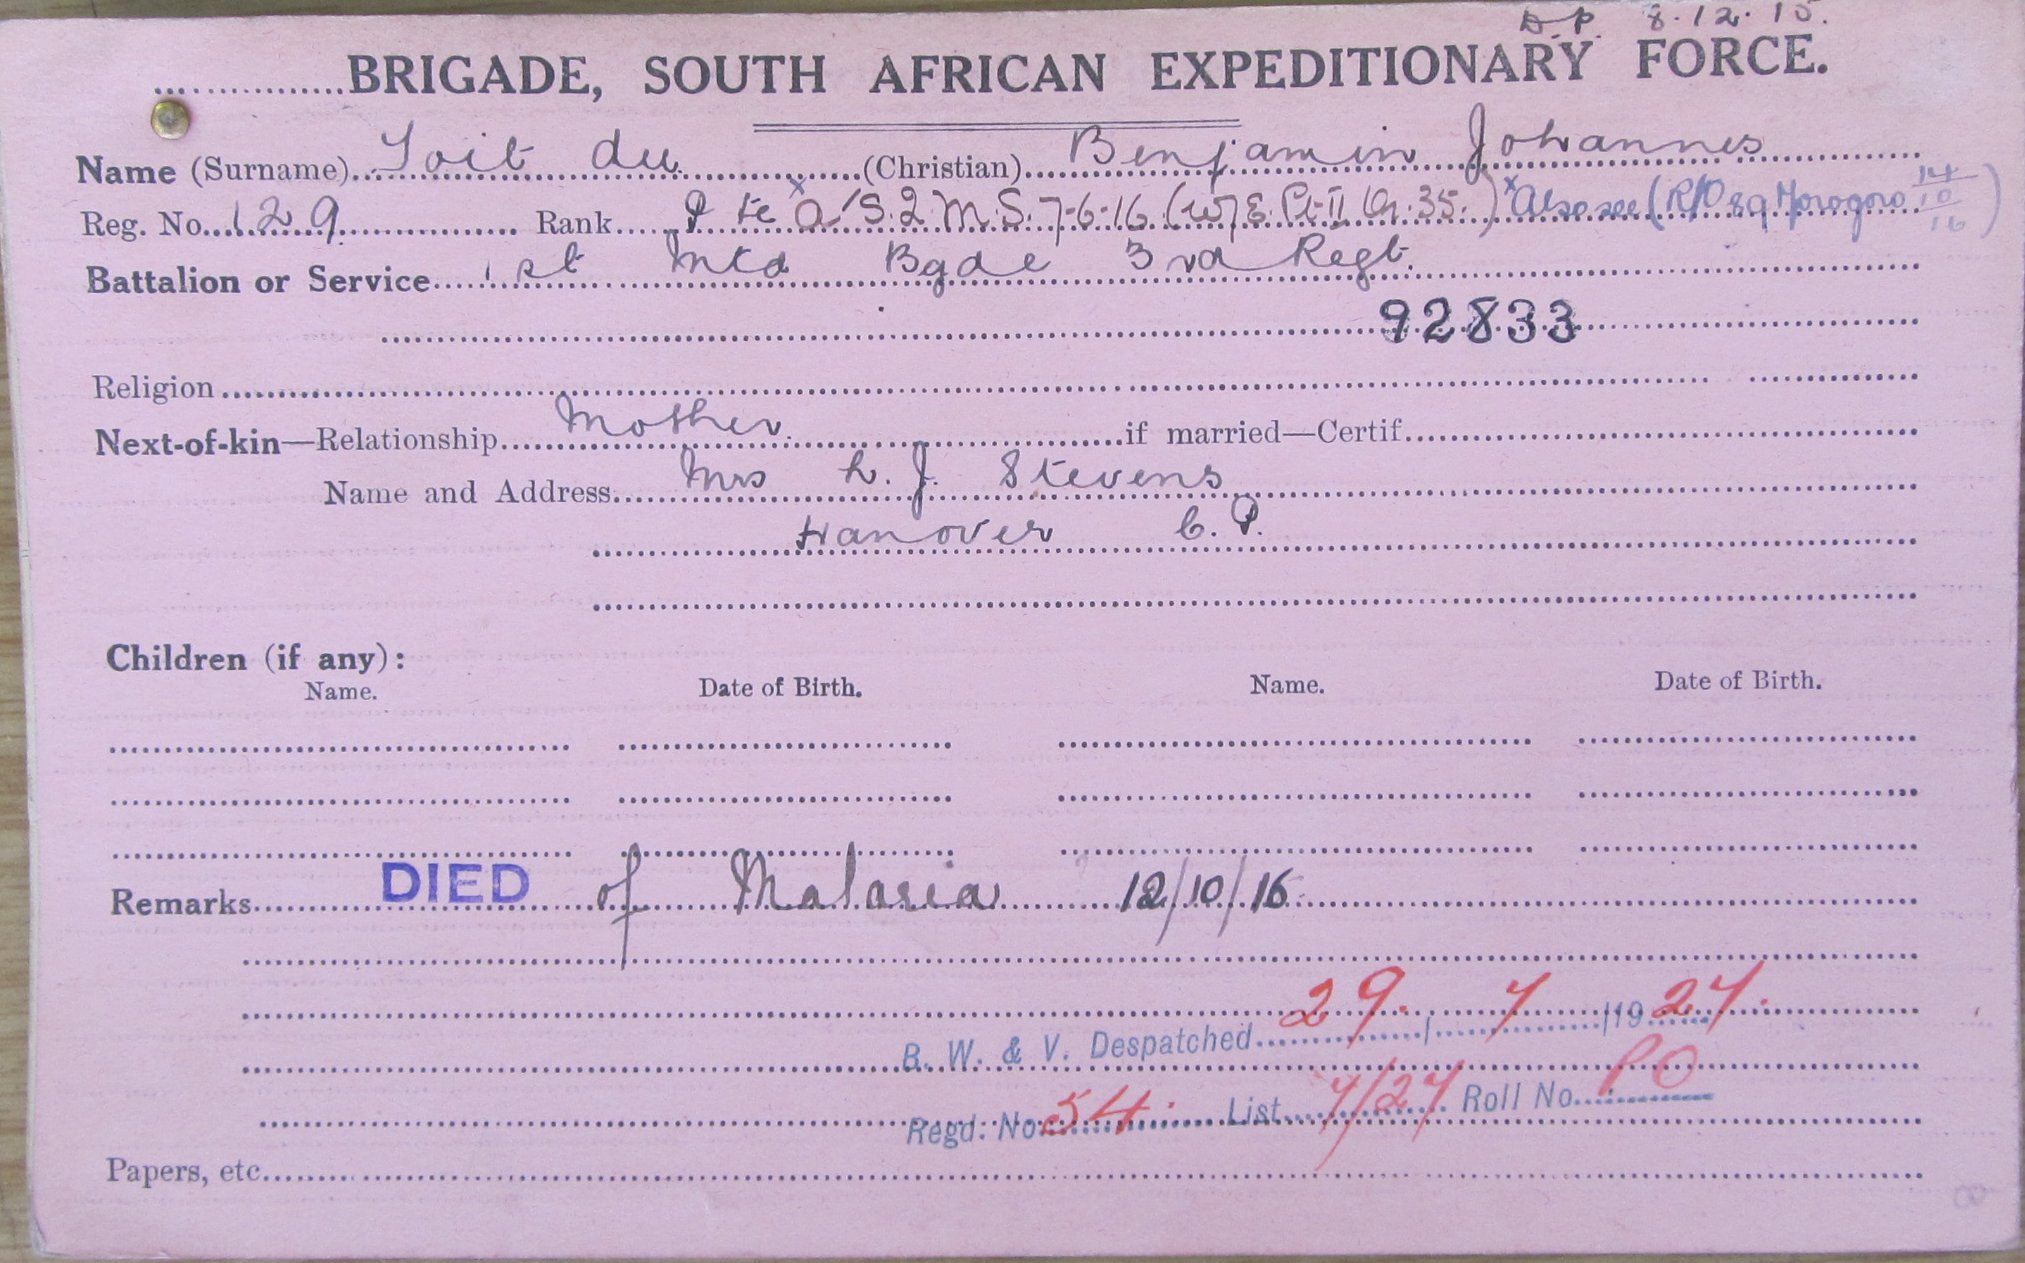 D.P. 8.12.15.
BRIGADE, SOUTH AFRICAN EXPEDITIONARY FORCE.
Name (Surname) Toit du (Christian) Benjamin Johannes
Reg. No. 129 Rank Pte x a/S.2.M.S. 7-6-16 (W/E. Pt II Or. 35.) x Also see (R/O 89 Morogoro 14/10/16)
Battalion or Service 1st Mtd Bgde 3rd Regt.
92833
Religion
Next-of-kin—Relationship Mother. if married—Certif.
Name and Address Mrs L. J. Stevens
Hanover C.P.
Children (if any):
Name. Date of Birth. Name. Date of Birth.
Remarks DIED of Malaria 12/10/16
B. W. & V. Despatched 29. / 7 /1927.
Regd. No. 54. List 7/27 Roll No. PO
Papers, etc.